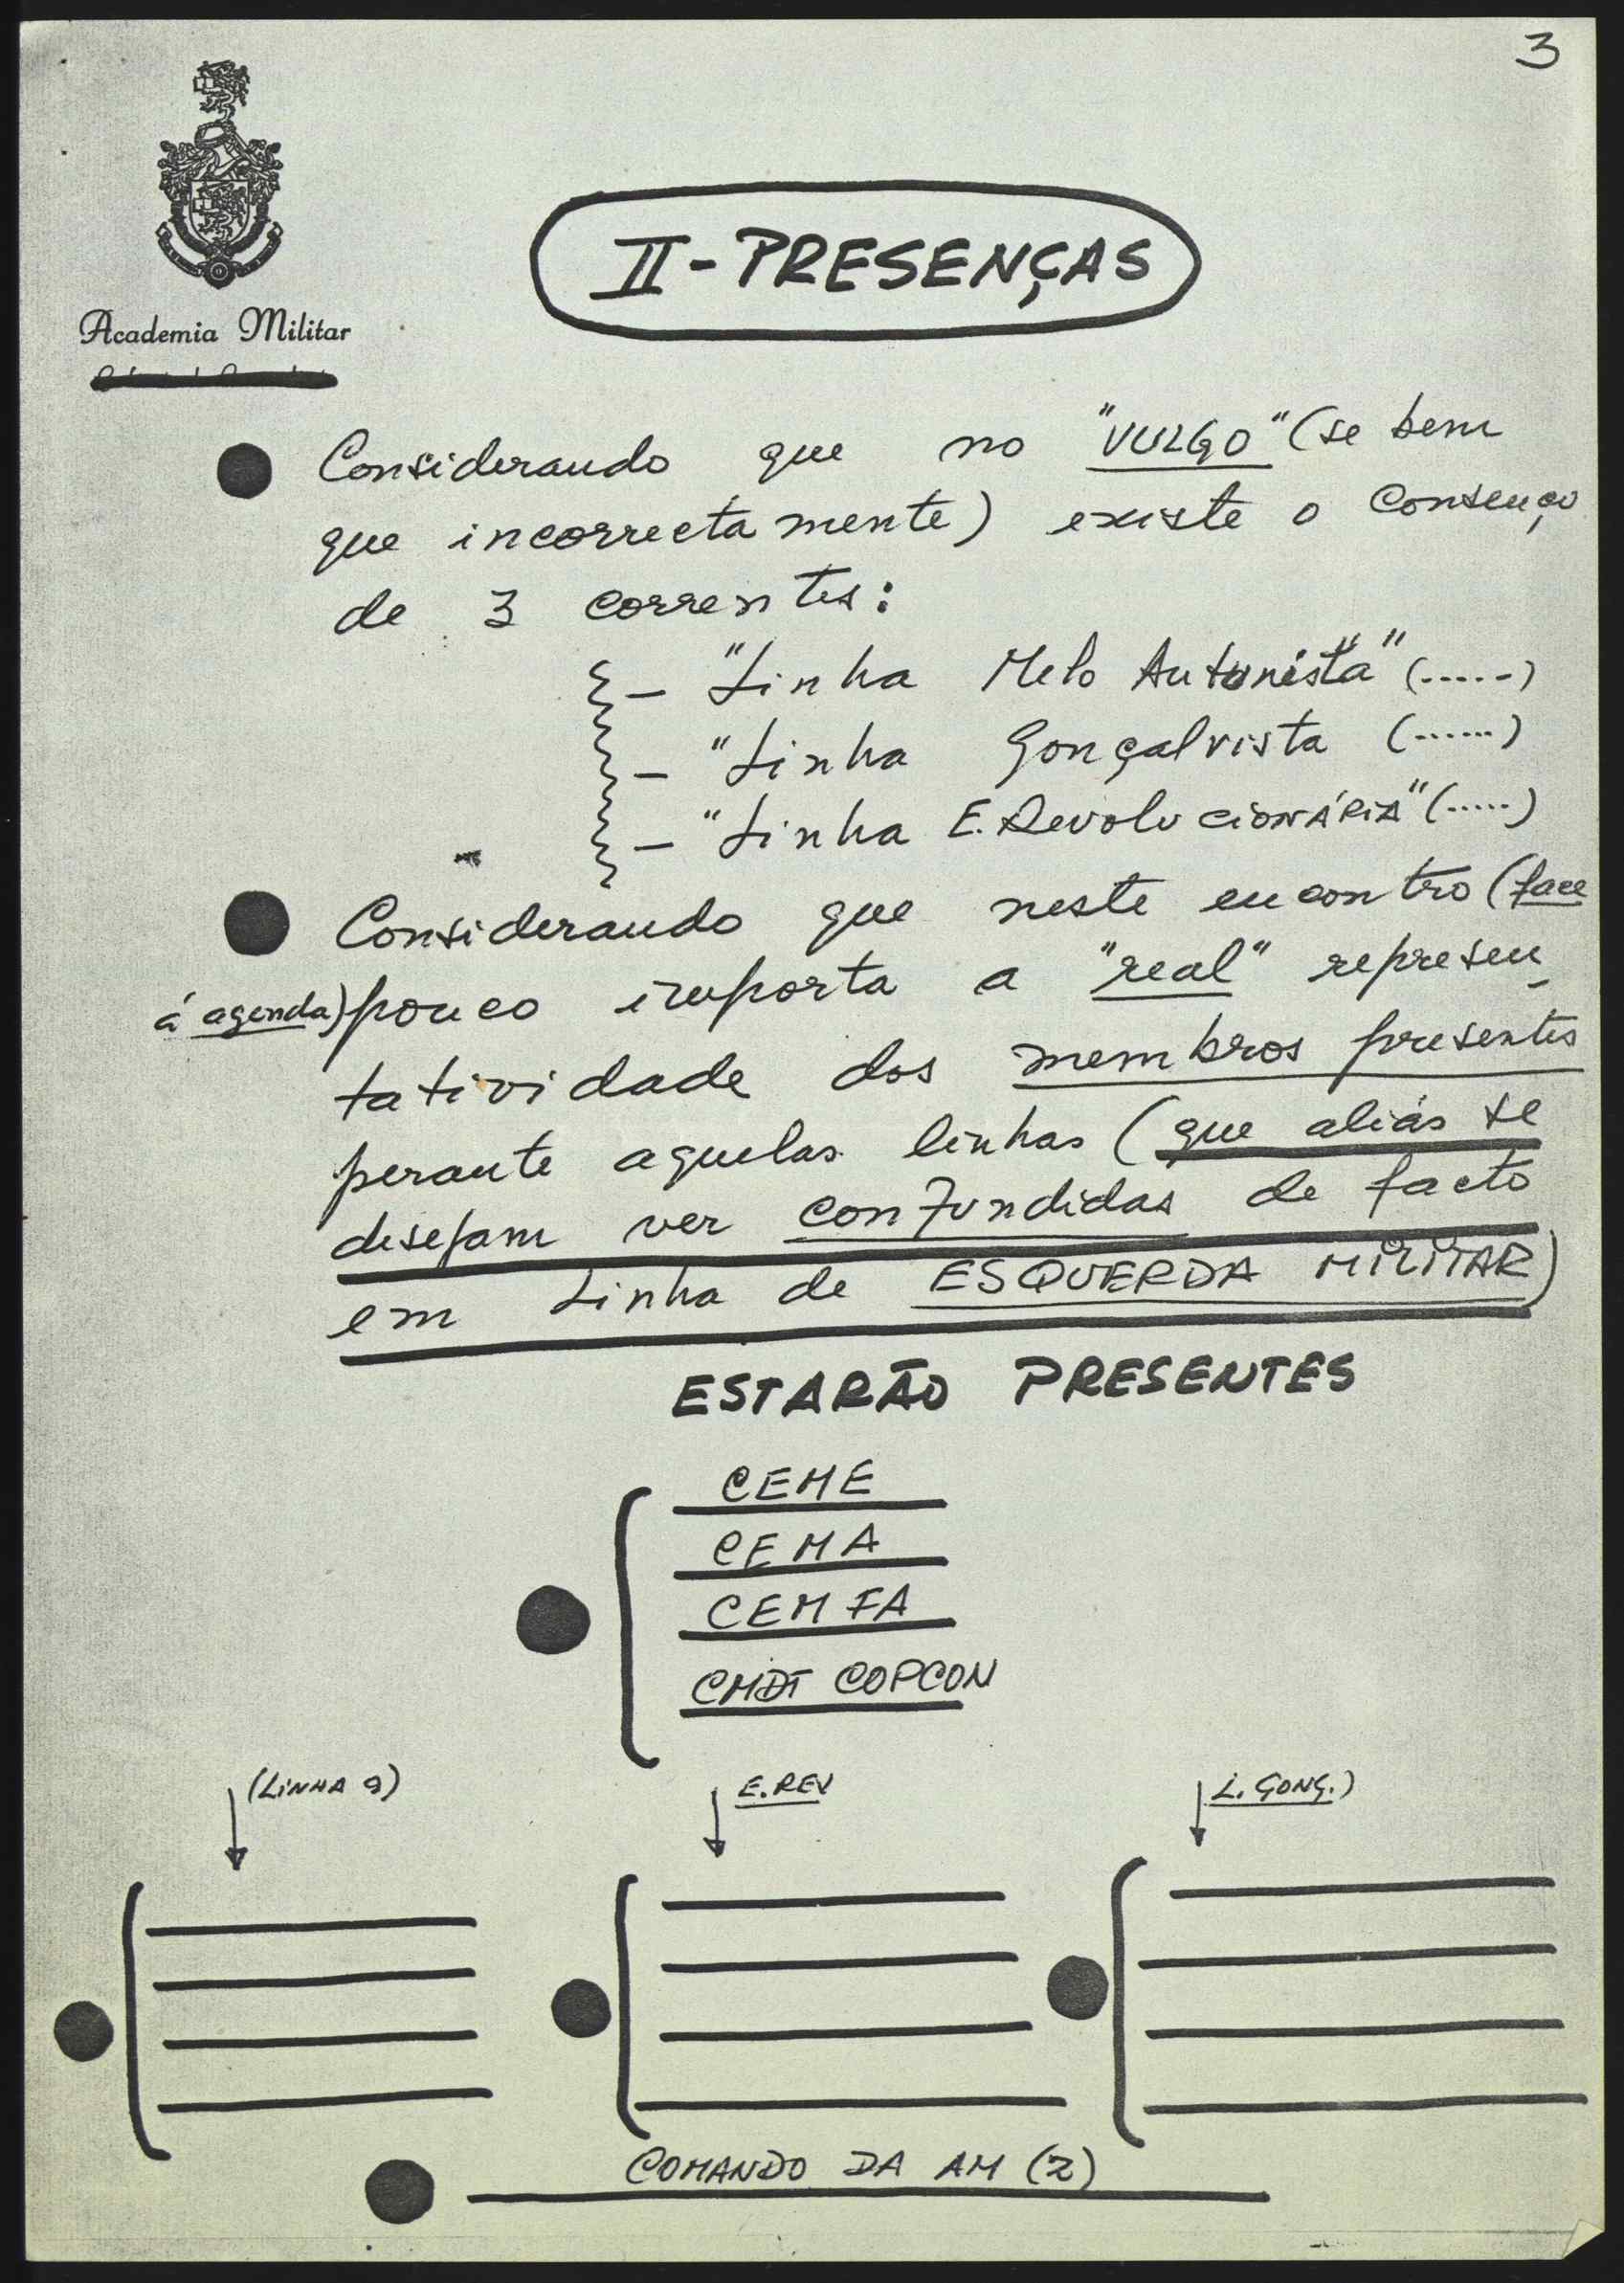 3
Academia Militar
II - PRESENÇAS
Considerando que no "VULGO" (se bem
que incorrectamente) existe o consenço
de 3 correntes:
- "Linha Melo Antunista" (.....)
- "Linha Gonçalvista (......)
- "Linha E. Revolucionária" (.....)
Considerando que neste encontro (face
á agenda) pouco importa a "real" represen
tatividade dos membros presentes
perante aquelas linhas (que aliás se
desejam ver confundidas de facto
em Linha de ESQUERDA MILITAR)
ESTARÃO PRESENTES
CEME
CEMA
CEMFA
CMDT COPCON
(LINHA 9) E. REV L. GONÇ.)
COMANDO DA AM (2)